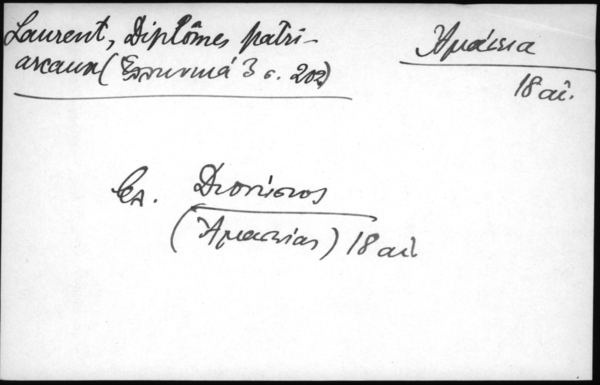 Laurent, Diplômes patri-
arcaux (Ἑλληνικά 3 σ. 202)
Ἀμάσεια
18 αἰ.
Ἐπ. Διονύσιος
(Ἀμασείας) 18 αἰ.